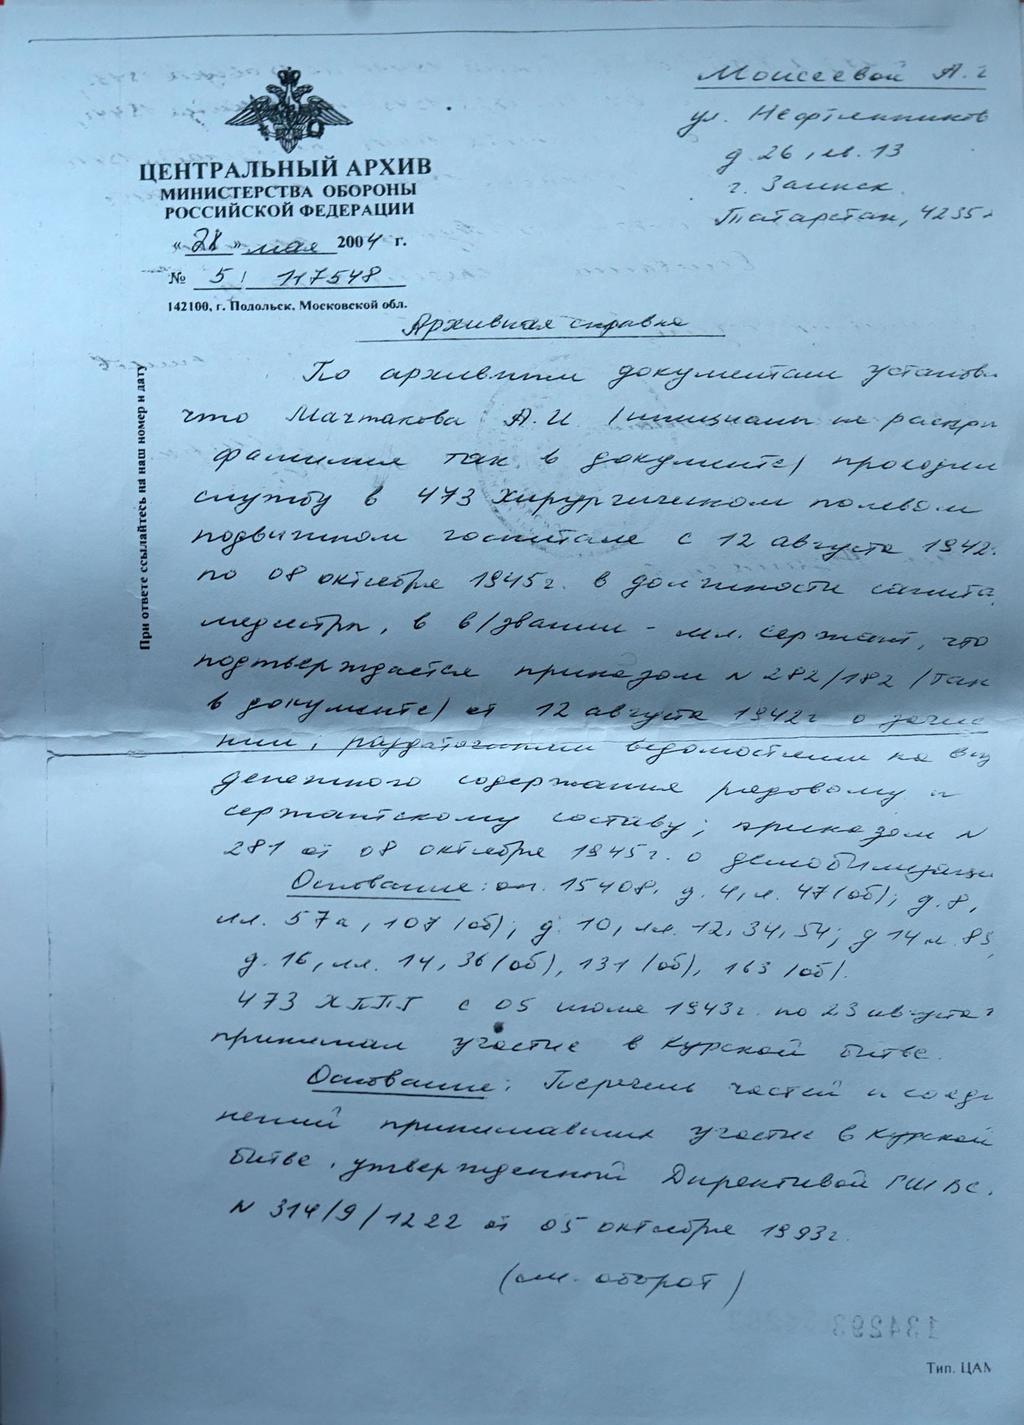 Моисеевой А.
ул. Нефтяников
д. 26, кв. 13
г. Заинск
Татарстан, 4235
ЦЕНТРАЛЬНЫЙ АРХИВ
МИНИСТЕРСТВА ОБОРОНЫ
РОССИЙСКОЙ ФЕДЕРАЦИИ
«28» мая 2004 г.
№ 5 / 117548
142100, г. Подольск, Московской обл.
При ответе ссылайтесь на наш номер и дату
Архивная справка
По архивным документам установ
что Мачтакова А.И. (инициалы не раскры
фамилия так в документе) проходил
службу в 473 хирургическом полевом
подвижном госпитале с 12 августа 1942г.
по 08 октября 1945г. в должности санита
медсестры, в в/звании - мл. сержант, что
подтверждается приказом N 282/182 (так
в документе) от 12 августа 1942г о зачис
нии, раздаточными ведомостями на выд
денежного содержания рядовому и
сержантскому составу; приказом N
281 от 08 октября 1945г. о демобилизаци
Основание: оп. 15408, д. 4, л. 47(об); д. 8,
лл. 57а, 107 (об); д. 10, лл. 12, 34, 54; д 14 л. 85
д. 16, лл. 14, 36(об), 131 (об), 163 (об).
473 ХППГ с 05 июля 1943г. по 23 августа
принимал участие в Курской битве.
Основание: Перечень частей и соеди
нений принимавших участие в Курской
битве, утвержденный Директивой ГШ ВС.
N 314/9/1222 от 05 октября 1993г.
(см. оборот)
134293
Тип. ЦАМ